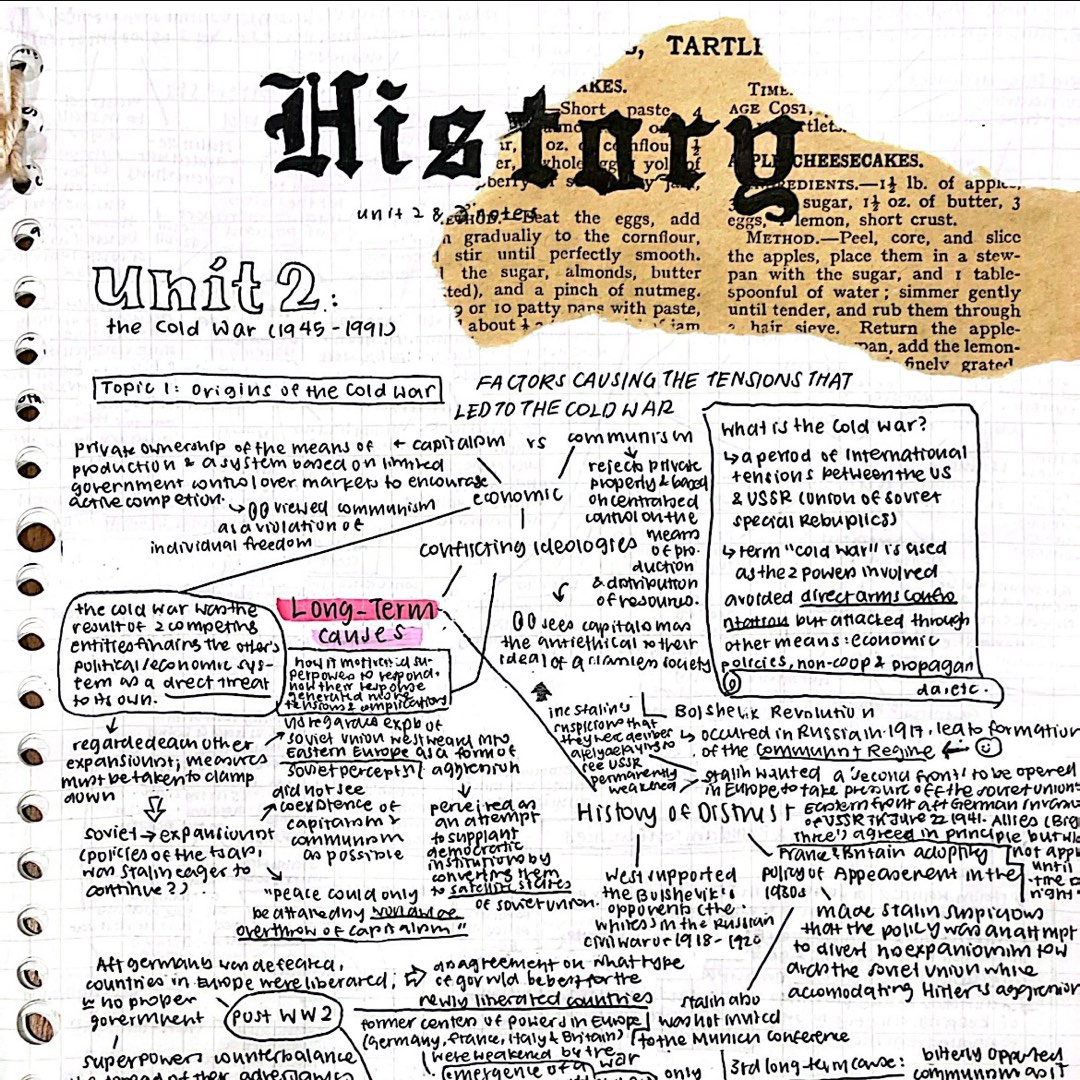 S, TARTLE
AKES.
—Short paste, 4
oz. cornflour, ½
whole egg, yolk of
TIME.
AGE COST,
tartlets.
APPLE CHEESECAKES.
INGREDIENTS.—1½ lb. of apples,
sugar, 1½ oz. of butter, 3
eggs, 1 lemon, short crust.
METHOD.—Peel, core, and slice
the apples, place them in a stew-
pan with the sugar, and 1 table-
spoonful of water; simmer gently
until tender, and rub them through
a hair sieve. Return the apple-
pan, add the lemon-
finely grated
Beat the eggs, add
gradually to the cornflour,
stir until perfectly smooth.
the sugar, almonds, butter
ted), and a pinch of nutmeg.
9 or 10 patty pans with paste,
about
jam
History
unit 2 & 3 notes
unit 2:
the Cold War (1945-1991)
Topic 1: Origins of the Cold War
FACTORS CAUSING THE TENSIONS THAT
LED TO THE COLD WAR
private ownership of the means of ← capitalism vs communism
production & a system based on limited
government control over markets to encourage
active competion.
↪ 00 viewed communism
as a violation of
individual freedom
economic
rejects private
property & based
on centralised
control on the
means
of pro-
duction
& distribution
of resources.
conflicting ideologies
00 sees capitalism as
the antiethical to their
ideal of a classless society
What is the cold war?
↪ a period of international
tensions between the US
& USSR (union of soviet
special Rebuplics)
↪ term "cold war" is used
as the 2 powers involved
avoided direct arms confro
ntation but attacked through
other means: economic
policies, non-coop & propagan
da, etc.
Long-Term
causes
the cold war was the
result of 2 competing
entities finding the other's
political/economic sys-
tem as a direct threat
to its own.
how it motivated su-
perpowers to respond,
how their response
generated more
tensions & complications
regarded each other
expansionist; measures
must be taken to clamp
down
soviet → expansionist
(policies of the tsars,
was Stalin eager to
continue?)
US regards expb of
soviet union westward into
Eastern Europe as a form of
aggression
soviet perceptn
did not see
coexistence of
capitalism &
communism
as possible
perceived as
an attempt
to supplant
democratic
institutions by
converting them
to satellite states
of soviet union.
"Peace could only
be attained by worldwide
overthrow of capitalism"
inc stalin's
suspicions that
they were deliber
ately delaying to
see USSR
permanently
weakened
Bolshevik Revolution
↪ occured in Russia in 1917, lead to formation
of the Communist Regime
stalin wanted a 'second front' to be opened
in Europe to take pressure off the soviet union's
Eastern front aft German invasion
of USSR in June 22 1941. Allies (Big
Three') agreed in principle but
not
until
the
right
History of Distrust
West supported
the Bolshevik's
opponents (the
whites in the Russian
civil war of 1918-1920
France & Britain adopting
policy of Appeasement in the
1930s
made Stalin suspicious
that the policy was an attempt
to divert
the soviet union while
accomodating Hitler's aggression
stalin also
was not invited
to the Munich conference
Aft germany was defeated,
countries in Europe were liberated;
w no proper
government
post WW2
disagreement on what type
of gov wld be best for the
newly liberated countries
former centers of powers in Europe
(Germany, France, Italy & Britain)
were weakened by the
war
emergence of a
only
superpowers counterbalance
the spread of their adversaries
3rd long-term cause:
bitterly opposed
communism as it